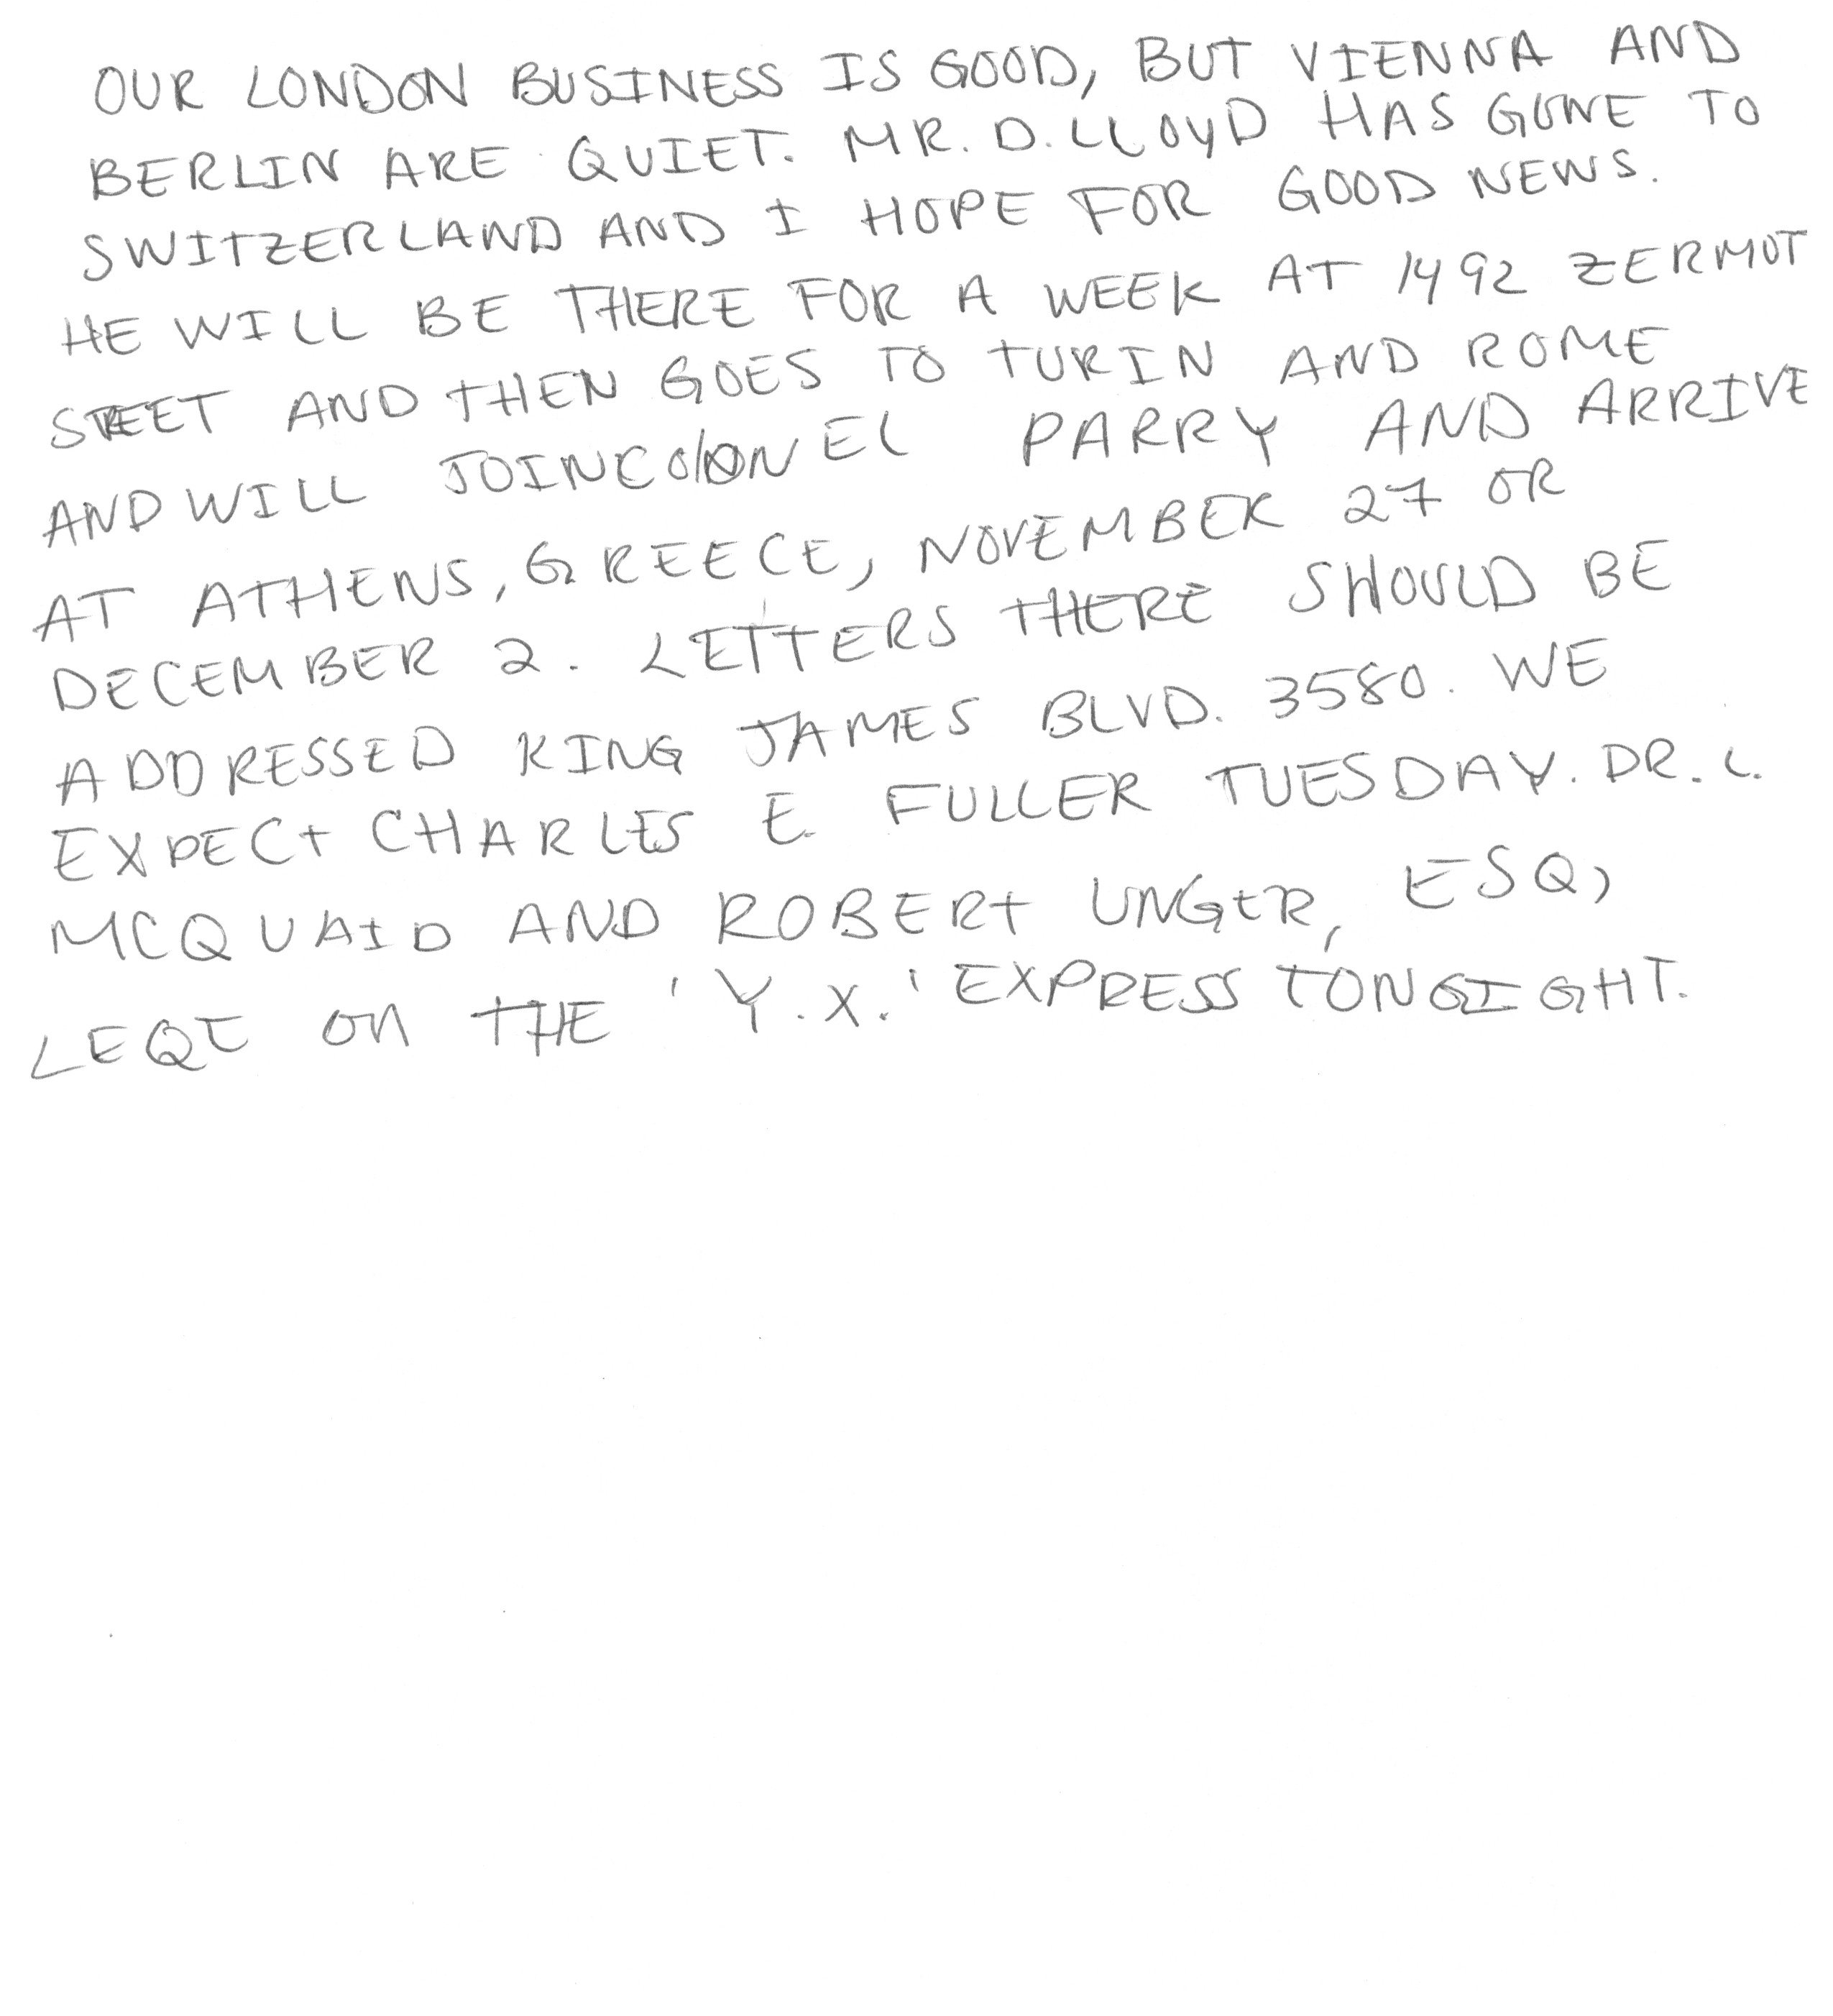 OUR LONDON BUSINESS IS GOOD, BUT VIENNA AND
BERLIN ARE QUIET. MR. D. LLOYD HAS GONE TO
SWITZERLAND AND I HOPE FOR GOOD NEWS.
HE WILL BE THERE FOR A WEEK AT 1492 ZERMOT
STREET AND THEN GOES TO TURIN AND ROME
AND WILL JOIN COLONEL PARRY AND ARRIVE
AT ATHENS, GREECE, NOVEMBER 27 OR
DECEMBER 2. LETTERS THERE SHOULD BE
ADDRESSED KING JAMES BLVD. 3580. WE
EXPECT CHARLES E. FULLER TUESDAY. DR. L.
MCQUAID AND ROBERT UNGER, ESQ,
ON THE 'Y.X.' EXPRESS